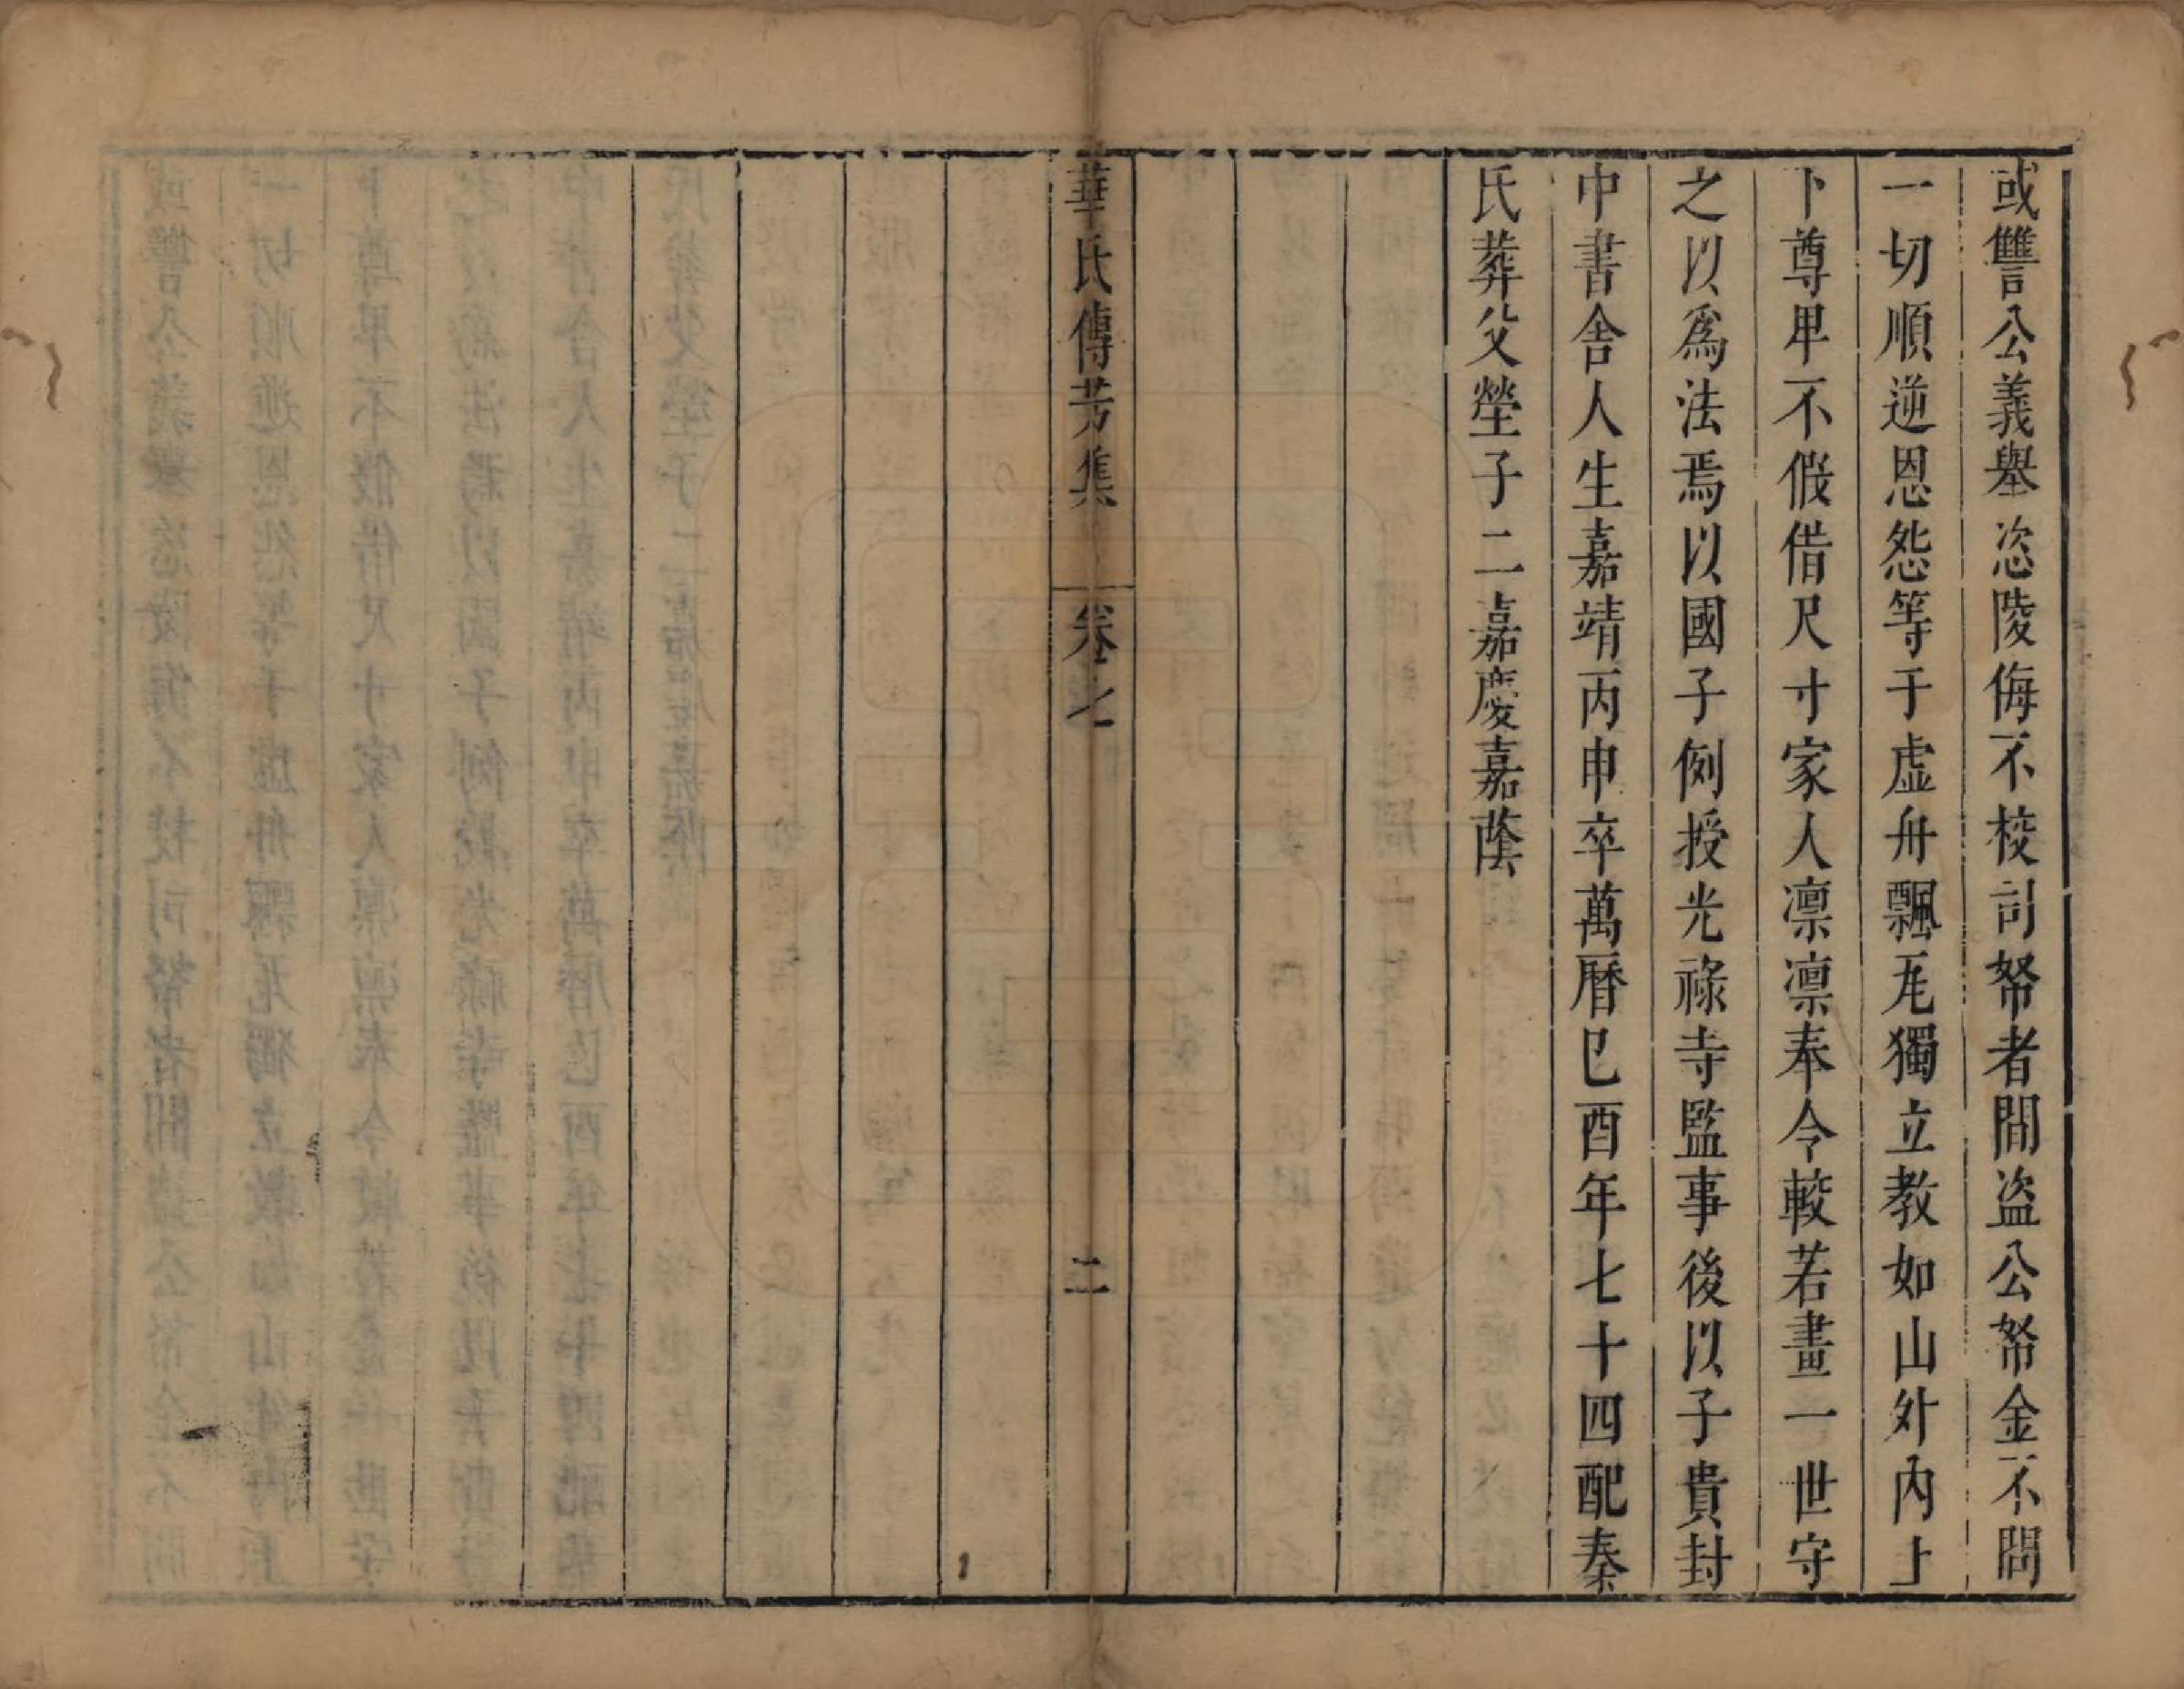 或讐公義舉恣陵侮不校司帑者間盗公帑金不問
一切順逆恩怨等于虚舟飄瓦獨立教如山外內上
下尊卑不假借尺寸家人凛凛奉令較若畫一世守
之以爲法焉以國子例授光祿寺監事後以子貴封
中書舍人生嘉靖丙申卒萬曆己酉年七十四配秦
氏葬父塋子二嘉慶嘉蔭
華氏傳芳集 卷七 二